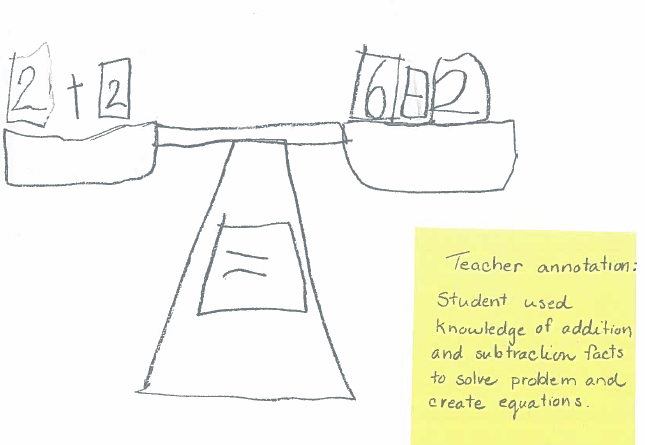 2 + 2
6 - 2
=
Teacher annotation:
Student used
knowledge of addition
and subtraction facts
to solve problem and
create equations.